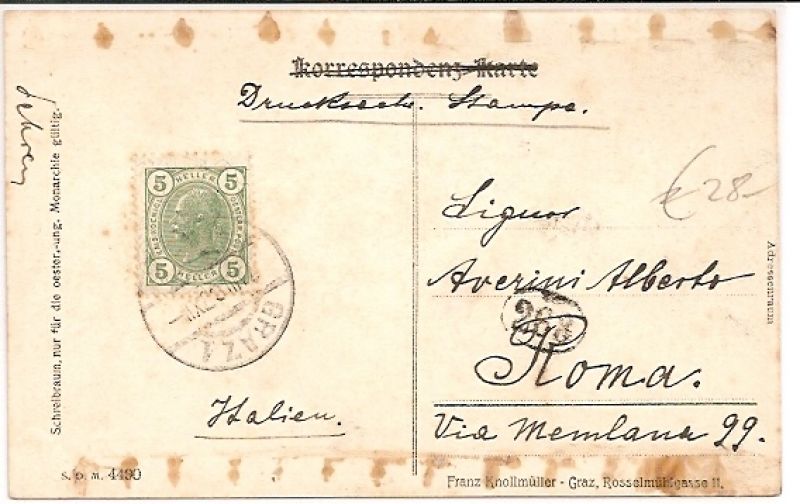 Korrespondenz-Karte
Drucksache. Stampe.
Schreibraum, nur für die oester.-ung. Monarchie gültig.
5 HELLER 5
5 HELLER 5
GRAZ 1
€ 28-
Signor
Averini Alberto
288
Roma.
Via Memlana 99.
Italien.
Adressenraum
S. p. M. 4490
Franz Knollmüller - Graz, Rosselmühlgasse 11.